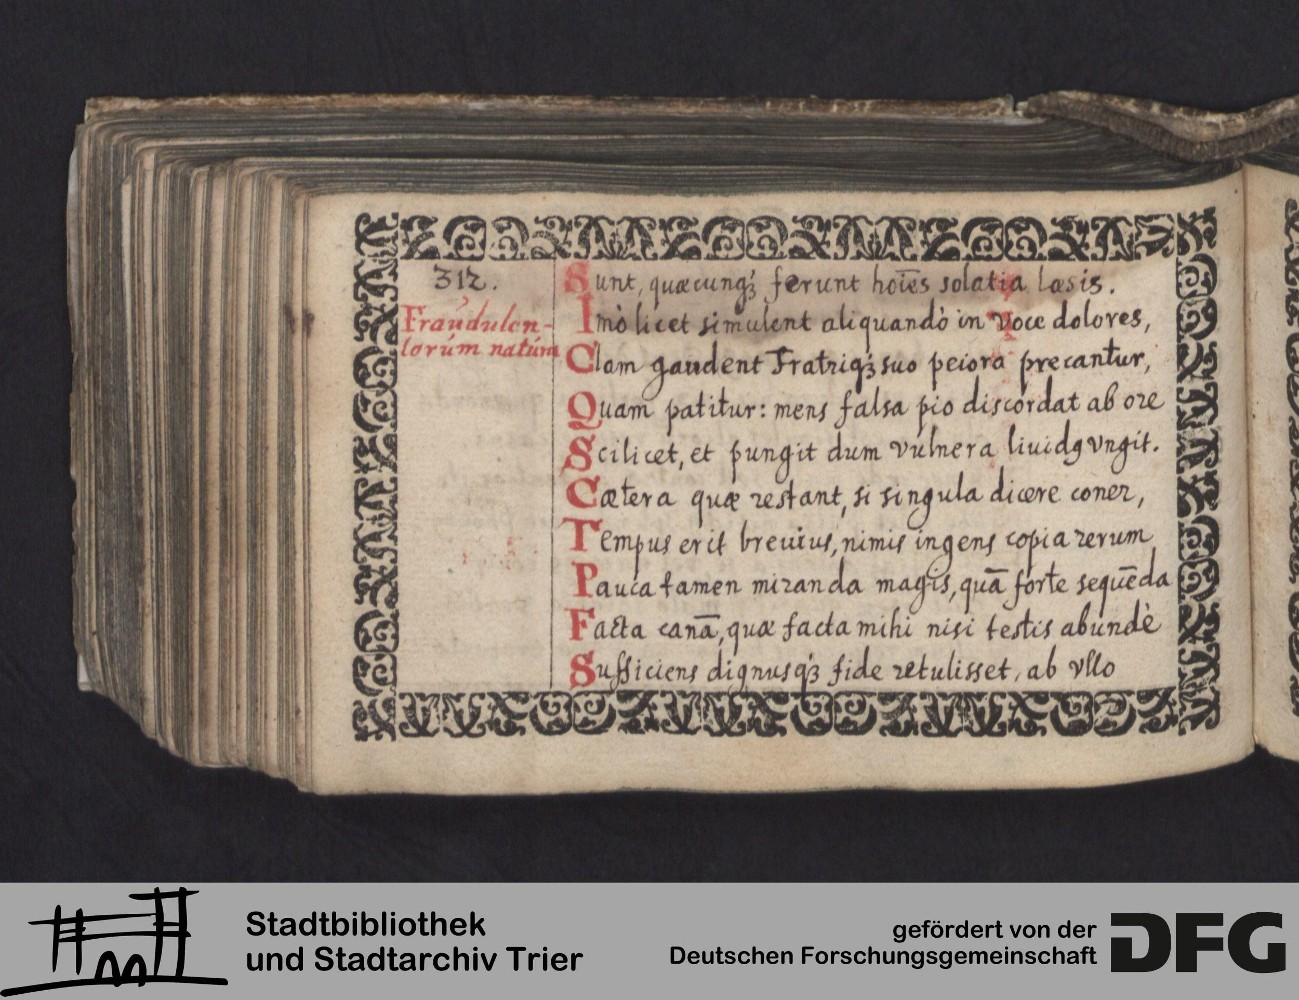 312.
Fraudulen-
torúm natúra
Sunt, quæcunqꝫ ferunt hoīes solatia læsis.
Imò licet simulent aliquandò in voce dolores,
Clam gaudent Fratriqꝫ suo peiora precantur,
Quam patitur: mens falsa pio discordat ab ore
Scilicet, et pungit dum vúlnera liuidꝯ vngit.
Cætera quæ restant, si singula dicere coner,
Tempus erit breuius, nimis ingens copia rerum,
Pauca tamen miranda magis, quā forte sequēda
Facta canā, quæ facta mihi nisi testis abundè
Sufficiens dignusqꝫ fide retulisset, ab vllo
Stadtbibliothek
und Stadtarchiv Trier
gefördert von der
Deutschen Forschungsgemeinschaft
DFG